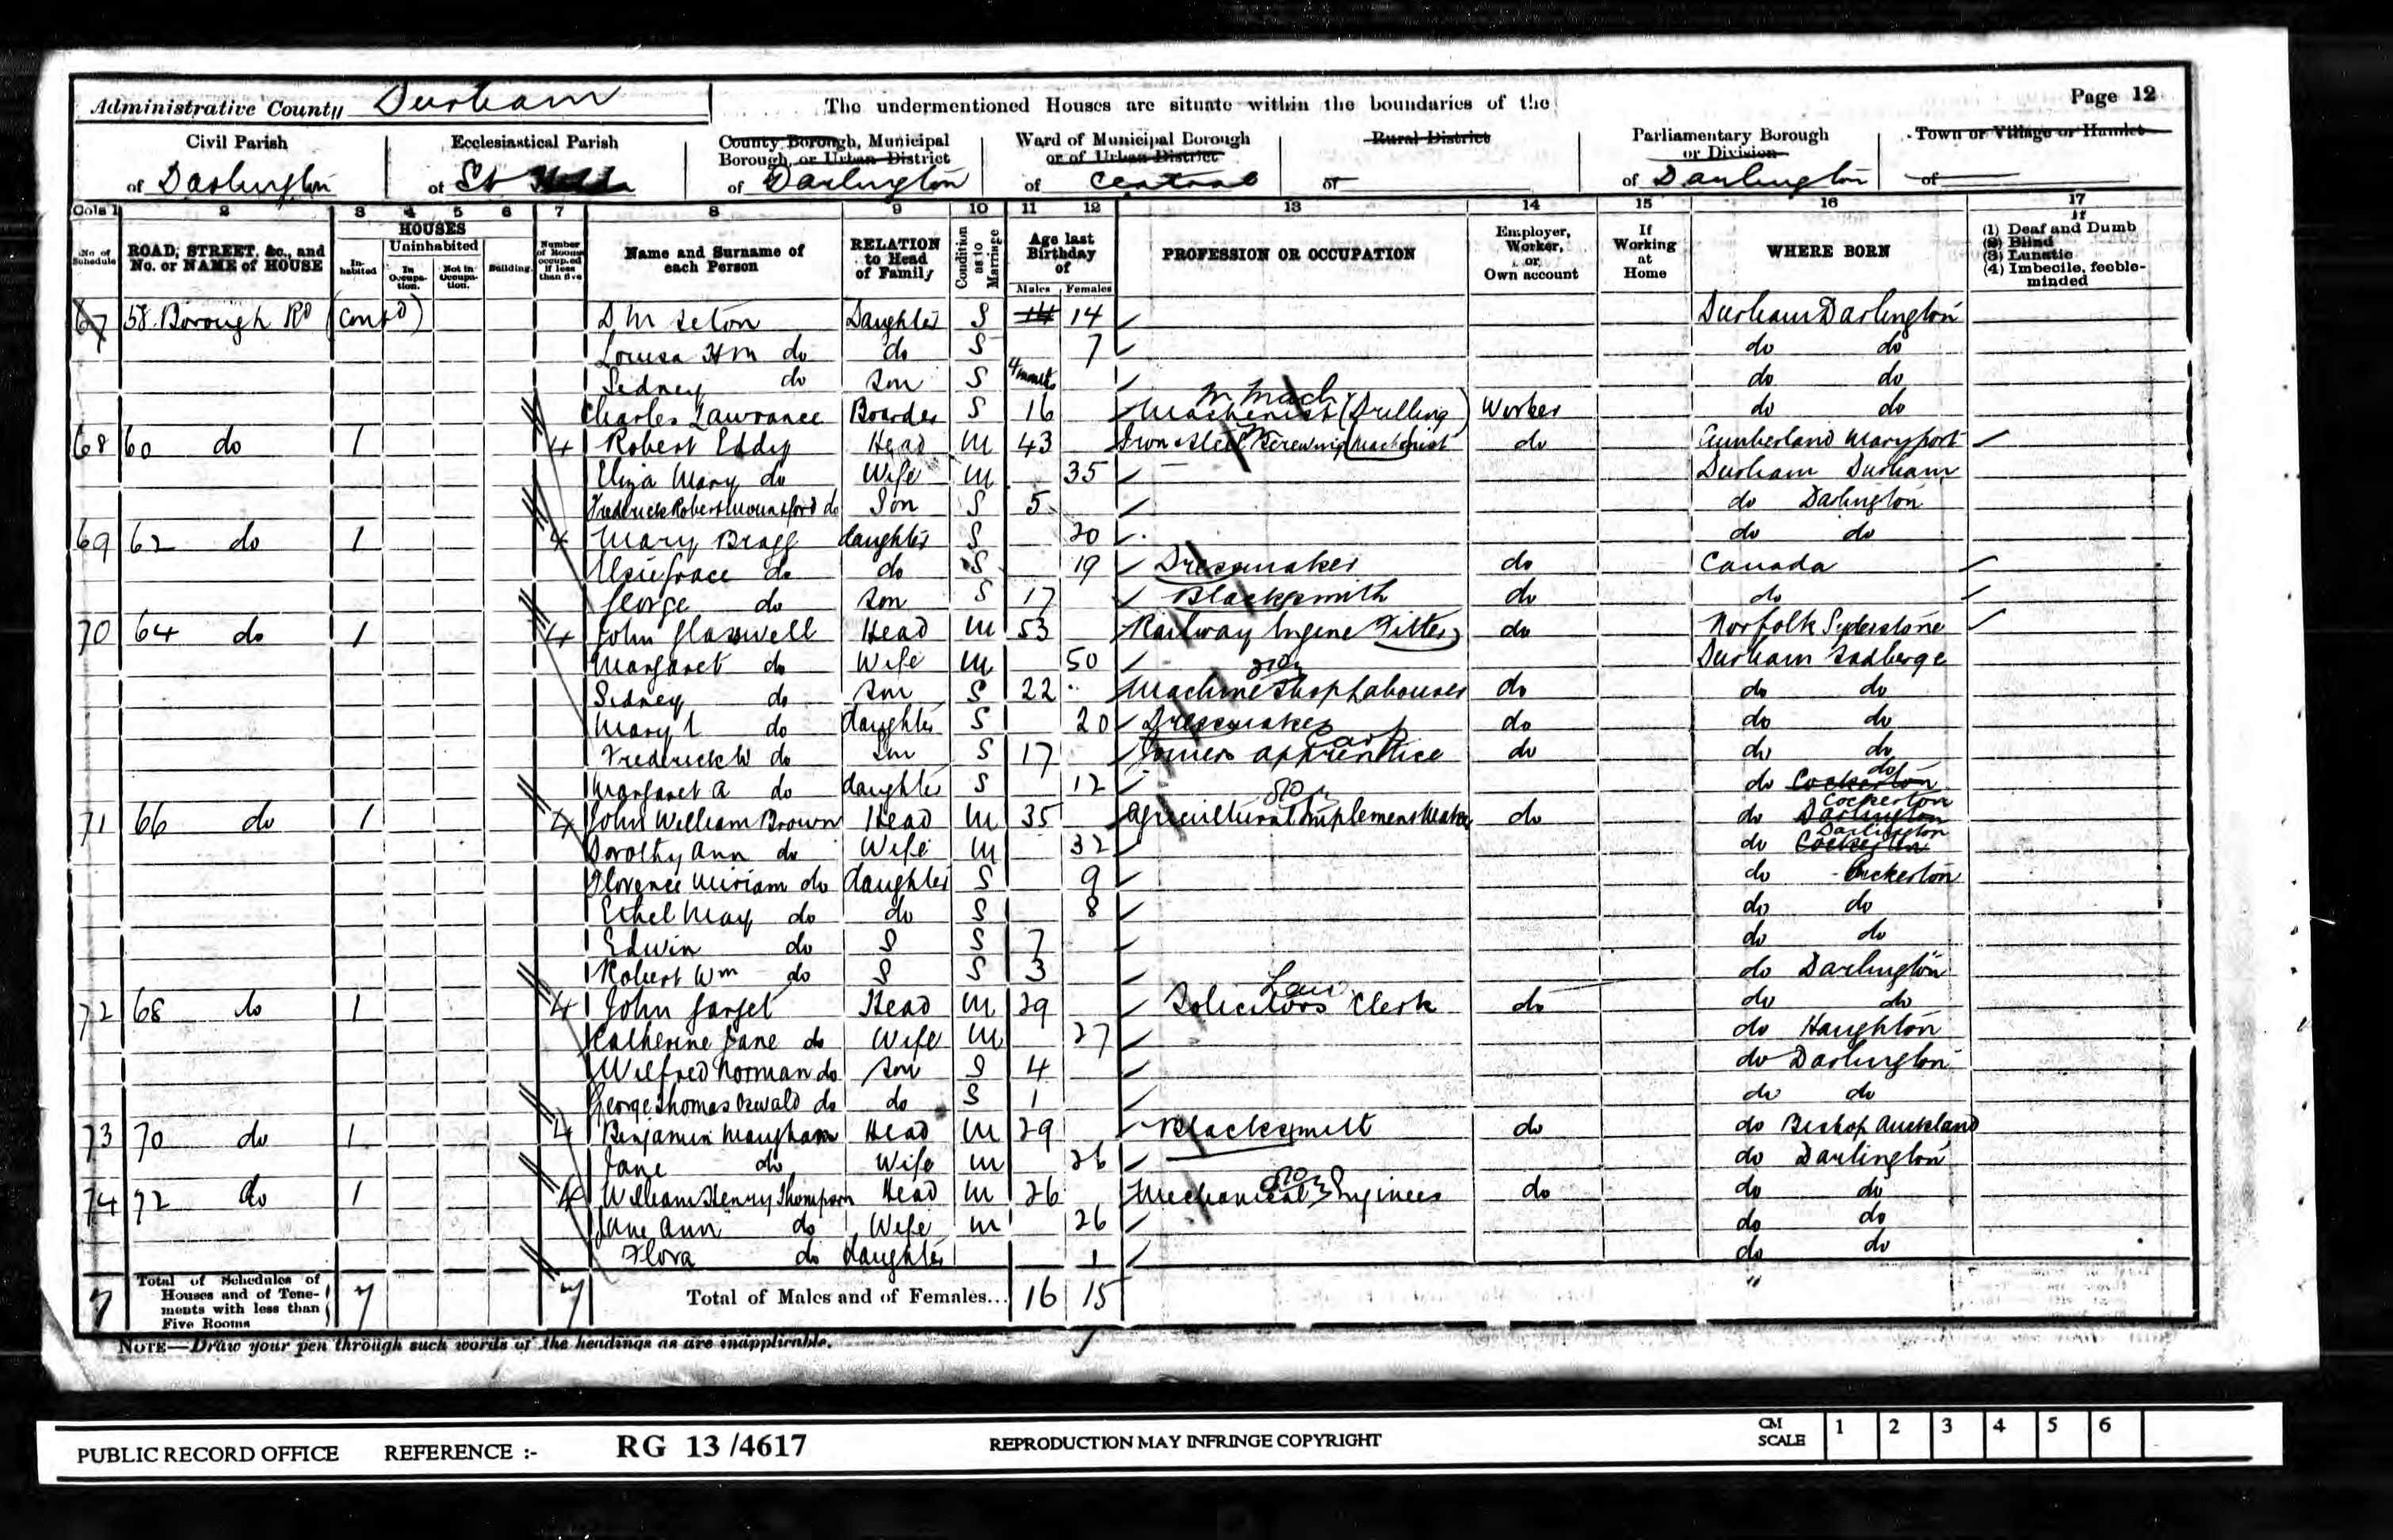 Administrative County Durham The undermentioned Houses are situate within the boundaries of the Page 12
Civil Parish of Darlington
Ecclesiastical Parish of St Hilda
County Borough, Municipal Borough, or Urban District of Darlington
Ward of Municipal Borough or of Urban District of Central
Rural District of
Parliamentary Borough or Division of Darlington
Town or Village or Hamlet of
Cols 1 2 3 4 5 6 7 8 9 10 11 12 13 14 15 16 17
No. of Schedule
ROAD, STREET, &c., and No. or NAME of HOUSE
HOUSES
Inhabited
Uninhabited
In Occupation.
Not in Occupation.
Building.
Number of Rooms occupied if less than five
Name and Surname of each Person
RELATION to Head of Family
Condition as to Marriage
Age last Birthday of
Males Females
PROFESSION OR OCCUPATION
Employer, Worker, or Own account
If Working at Home
WHERE BORN
If
(1) Deaf and Dumb
(2) Blind
(3) Lunatic
(4) Imbecile, feeble-minded
67 58 Borough Rd (contd) D M Seton Daughter S 14 14 Durham Darlington
Louisa H M do do S 7 do do
Sidney do Son S 4 months do do
Charles Lawrance Boarder S 16 M Mach Machinist (Drilling) Worker do do
68 60 do 1 4 Robert Eddy Head M 43 Iron & Steel Screwing Machinist do Cumberland Maryport
Eliza Mary do Wife M 35 Durham Durham
Frederick Robert Mounsford do Son S 5 do Darlington
69 62 do 1 4 Mary Bragg daughter S 20 do do
Elsie Grace do do S 19 Dressmaker do Canada
George do Son S 17 Blacksmith do do
70 64 do 1 4 John Glasswell Head M 53 Railway Engine Fitter do Norfolk Syderstone
Margaret do Wife M 50 Durham Sadberge
Sidney do Son S 22 Machine Shop Labourer do do do
Mary L do daughter S 20 Dressmaker do do do
Frederick W do Son S 17 Joiners apprentice Carp do do do
Margaret A do daughter S 12 do Cockerton do
71 66 do 1 4 John William Brown Head M 35 Agricultural Implement Maker do do Darlington Cockerton
Dorothy Ann do Wife M 32 do Cockerton Darlington
Florence Miriam do daughter S 9 do Cockerton
Ethel May do do S 8 do do
Edwin do S S 7 do do
Robert Wm do S S 3 do Darlington
72 68 do 1 4 John Garget Head M 29 Law Solicitors Clerk do do do
Catherine Jane do Wife M 27 do Haughton
Wilfred Norman do Son S 4 do Darlington
George Thomas Oswald do do S 1 do do
73 70 do 1 4 Benjamin Maugham Head M 29 Blacksmith do do Bishop Auckland
Jane do Wife M 26 do Darlington
74 72 do 1 4 William Henry Thompson Head M 26 Mechanical Engineer do do do
Jane Ann do Wife M 26 do do
Flora do daughter 1 do do
7 Total of Schedules of Houses and of Tenements with less than Five Rooms 7 7 Total of Males and of Females... 16 15
NOTE—Draw your pen through such words of the headings as are inapplicable.
PUBLIC RECORD OFFICE REFERENCE :- RG 13 /4617 REPRODUCTION MAY INFRINGE COPYRIGHT CM SCALE 1 2 3 4 5 6